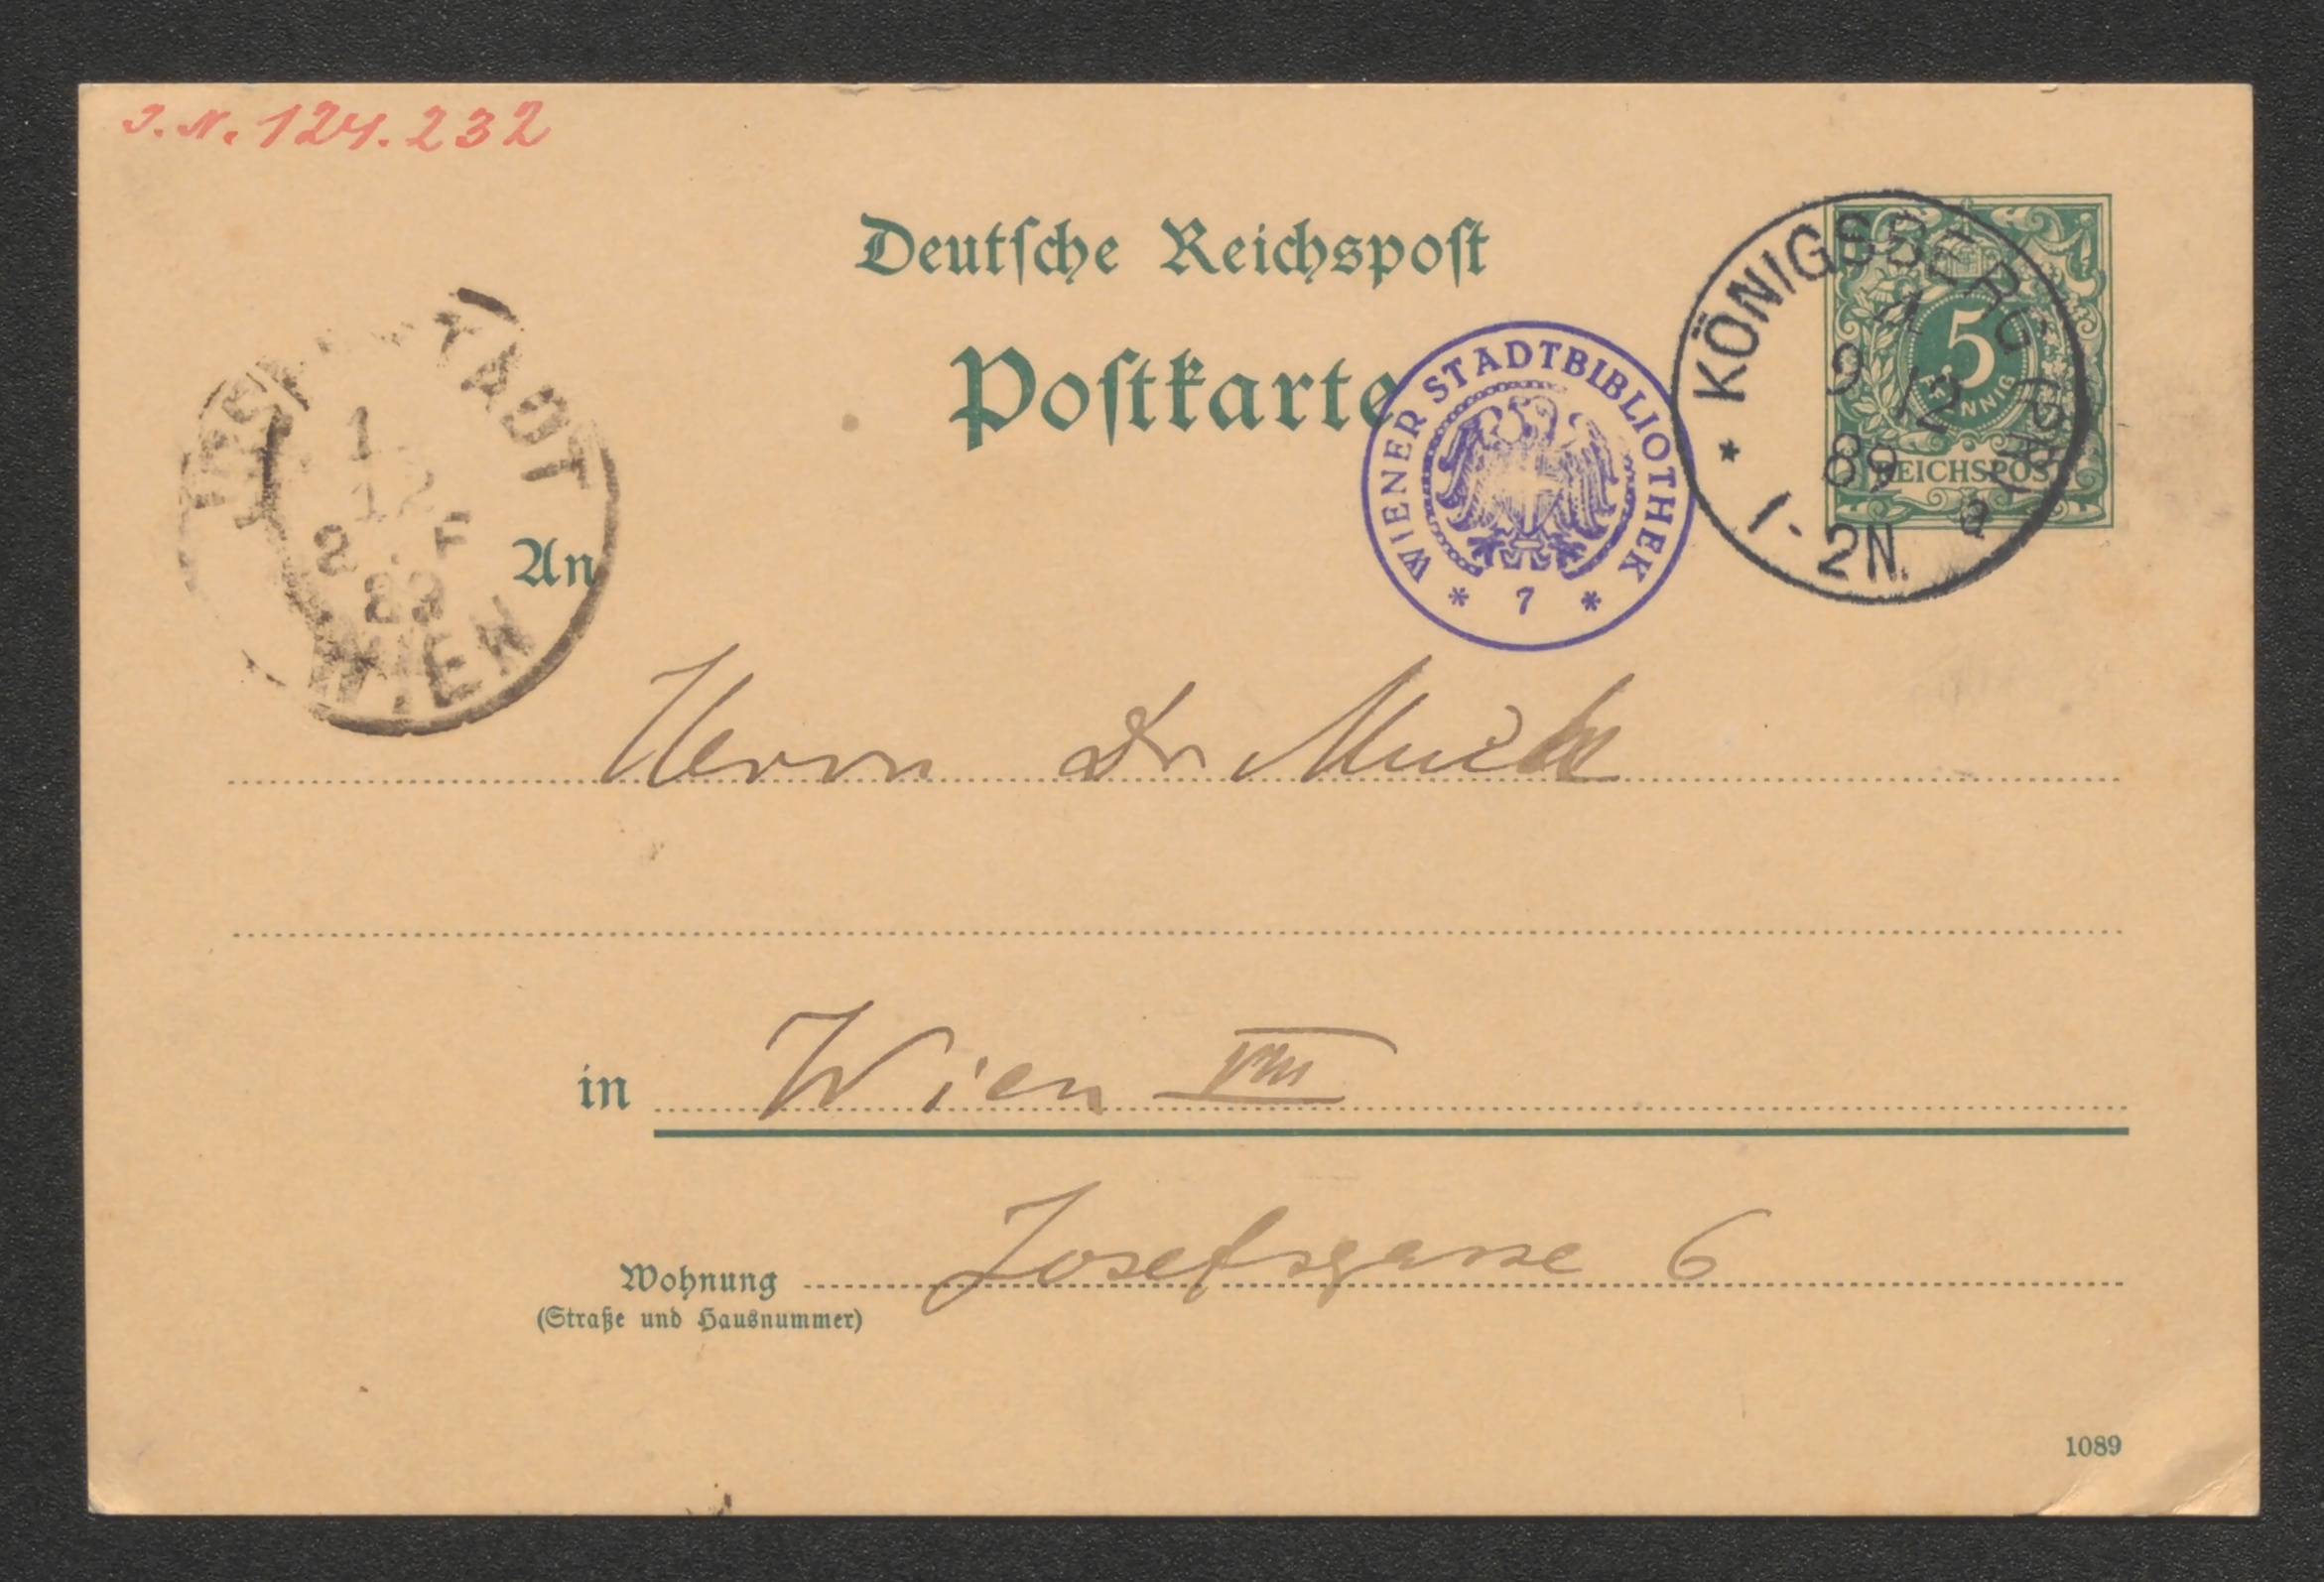 J. N. 124.232
Deutsche Reichspost
Postkarte
KÖNIGSBERG (PR)
4
9 12
89
1-2N. a
5
PFENNIG
REICHSPOST
WIENER STADTBIBLIOTHEK
* 7 *
STADT
1
12
8 . F
89
WIEN
An
Herrn Dr Much
in Wien VIII
Wohnung Josefsgasse 6
(Straße und Hausnummer)
1089